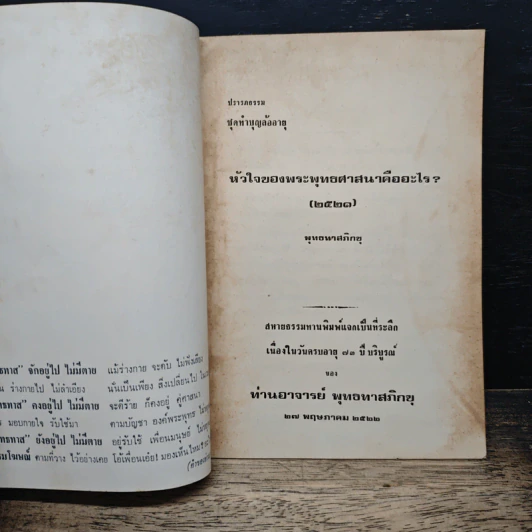 ทธทาส" จักอยู่ไป ไม่มีตาย แม้ร่างกาย จะดับ ไม่ฟังเสียง
น ร่างกายไป ไม่ลำเอียง นั่นเป็นเพียง สิ่งเปลี่ยนไป
ทธทาส" คงอยู่ไป ไม่มีตาย จะดีร้าย ก็คงอยู่ คู่ศาสนา
มอบกายใจ รับใช้มา ตามบัญชา องค์พระพุทธ
ทธทาส" ยังอยู่ไป ไม่มีตาย อยู่รับใช้ เพื่อนมนุษย์
รมโฆษณ์ ตามที่วาง ไว้อย่างเคย โอ้เพื่อนเอ๋ย! มองเห็นไหม
ปรารภธรรม
ชุดทำบุญล้ออายุ
หัวใจของพระพุทธศาสนาคืออะไร?
(๒๕๒๑)
พุทธทาสภิกขุ
สหายธรรมทานพิมพ์แจกเป็นที่ระลึก
เนื่องในวันครบอายุ ๗๓ ปี บริบูรณ์
ของ
ท่านอาจารย์ พุทธทาสภิกขุ
๒๗ พฤษภาคม ๒๕๒๒